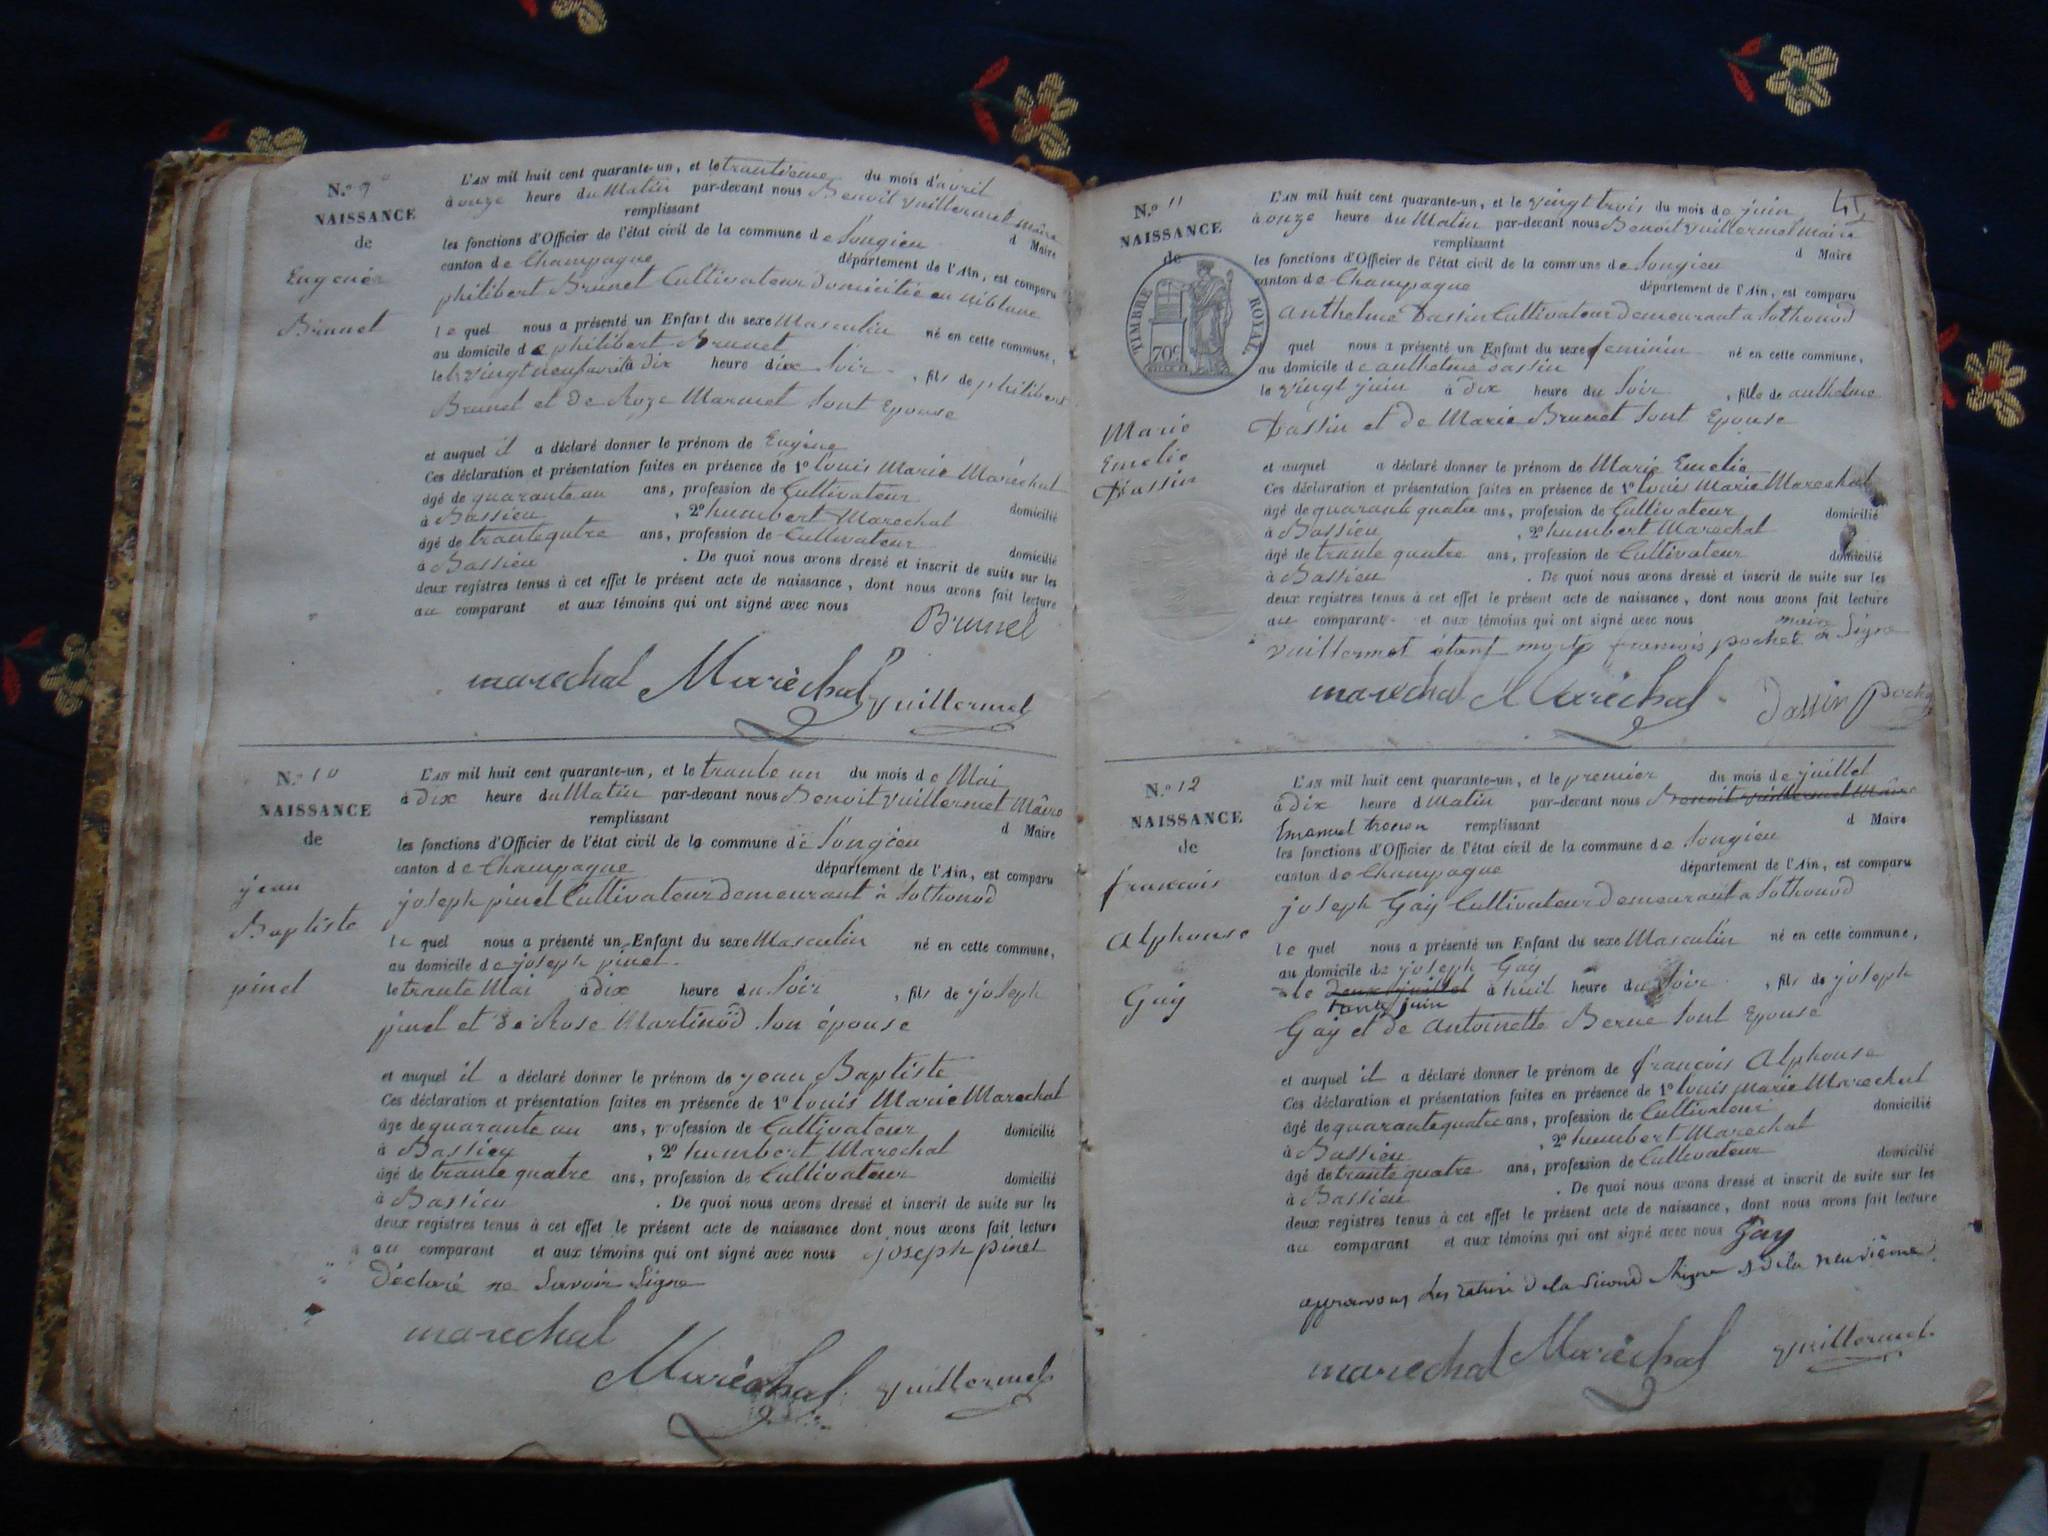 N.° 9
NAISSANCE
de
Eugene
Brunet
L'AN mil huit cent quarante-un, et le trantieme du mois d'avril
à onze heure du Matin par-devant nous Benoit Vuillermet Maire
remplissant d Maire
les fonctions d'Officier de l'état civil de la commune de Songieu
canton de Champagne département de l'Ain, est comparu
philibert Brunet Cultivateur domicilié au
le quel nous a présenté un Enfant du sexe Masculin né en cette commune,
au domicile de philibert Brunet
le vingt neuf avril à dix heure du Soir , fils de philibert
Brunet et de Roze Marmet Sont Epouse
et auquel il a déclaré donner le prénom de Eugène
Ces déclaration et présentation faites en présence de 1° louis Marie Maréchal
âgé de quarante un ans, profession de Cultivateur domicilié
à Bassieu , 2° humbert Marechal
âgé de trante qutre ans, profession de Cultivateur domicilié
à Bassieu . De quoi nous avons dressé et inscrit de suite sur les
deux registres tenus à cet effet le présent acte de naissance, dont nous avons fait lecture
au comparant et aux témoins qui ont signé avec nous
Brunet
marechal Maréchal Vuillermet
N.° 10
NAISSANCE
de
jean
Baptiste
pinet
L'AN mil huit cent quarante-un, et le trante un du mois de Mai
à dix heure du Matin par-devant nous Benoit Vuillermet Maire
remplissant d Maire
les fonctions d'Officier de l'état civil de la commune de Songieu
canton de Champagne département de l'Ain, est comparu
joseph pinet Cultivateur demeurant à Sothonod
le quel nous a présenté un Enfant du sexe Masculin né en cette commune,
au domicile de joseph pinet
le trante Mai à dix heure du Soir , fils de joseph
pinet et de Rose Martinod Son épouse
et auquel il a déclaré donner le prénom de jean Baptiste
Ces déclaration et présentation faites en présence de 1° louis Marie Marechal
âgé de quarante un ans, profession de Cultivateur domicilié
à Bassieu , 2° humbert Marechal
âgé de trante quatre ans, profession de Cultivateur domicilié
à Bassieu . De quoi nous avons dressé et inscrit de suite sur les
deux registres tenus à cet effet le présent acte de naissance dont nous avons fait lecture
au comparant et aux témoins qui ont signé avec nous joseph pinet
déclaré ne Savoir Signe
marechal
Maréchal Vuillermet
N.° 11
NAISSANCE
de
TIMBRE ROYAL
70c
Marie
Emelie
Dassin
L'AN mil huit cent quarante-un, et le vingt trois du mois de juin
à onze heure du Matin par-devant nous Benoit Vuillermet Maire
remplissant d Maire
les fonctions d'Officier de l'état civil de la commune de Songieu
canton de Champagne département de l'Ain, est comparu
anthelme Dassin Cultivateur demeurant a Sothonod
quel nous a présenté un Enfant du sexe feminin né en cette commune,
au domicile de anthelme dassin
le vingt juin à dix heure du Soir , fille de anthelme
Dassin et de Marie Brunet Sont Epouse
et auquel a déclaré donner le prénom de Marie Emelie
Ces déclaration et présentation faites en présence de 1° louis Marie Marechal
âgé de quarante quatre ans, profession de Cultivateur domicilié
à Bassieu , 2° humbert Marechal
âgé de trante quatre ans, profession de Cultivateur domicilié
à Bassieu . De quoi nous avons dressé et inscrit de suite sur les
deux registres tenus à cet effet le présent acte de naissance, dont nous avons fait lecture
au comparant et aux témoins qui ont signé avec nous
maire
Vuillermet étant mort françois pochet a Signe
marechal Maréchal Dassin poche
N.° 12
NAISSANCE
de
francois
Alphonse
Gay
L'AN mil huit cent quarante-un, et le premier du mois de juillet
à dix heure d Matin par-devant nous Benoit Vuillermet Maire
Emanuel remplissant d Maire
les fonctions d'Officier de l'état civil de la commune de Songieu
canton de Champagne département de l'Ain, est comparu
joseph Gay Cultivateur demeurant a Sothonod
le quel nous a présenté un Enfant du sexe Masculin né en cette commune,
au domicile de joseph Gay
le deux juillet à huit heure du Soir , fils de joseph
juin
Gay et de Antoinette Berne Sont Epouse
et auquel il a déclaré donner le prénom de françois Alphonse
Ces déclaration et présentation faites en présence de 1° louis Marie Marechal
âgé de quarante quatre ans, profession de Cultivateur domicilié
à Bassieu , 2° humbert Marechal
âgé de trante quatre ans, profession de Cultivateur domicilié
à Bassieu . De quoi nous avons dressé et inscrit de suite sur les
deux registres tenus à cet effet le présent acte de naissance, dont nous avons fait lecture
au comparant et aux témoins qui ont signé avec nous Gay
de la neuvième
marechal Maréchal Vuillermet